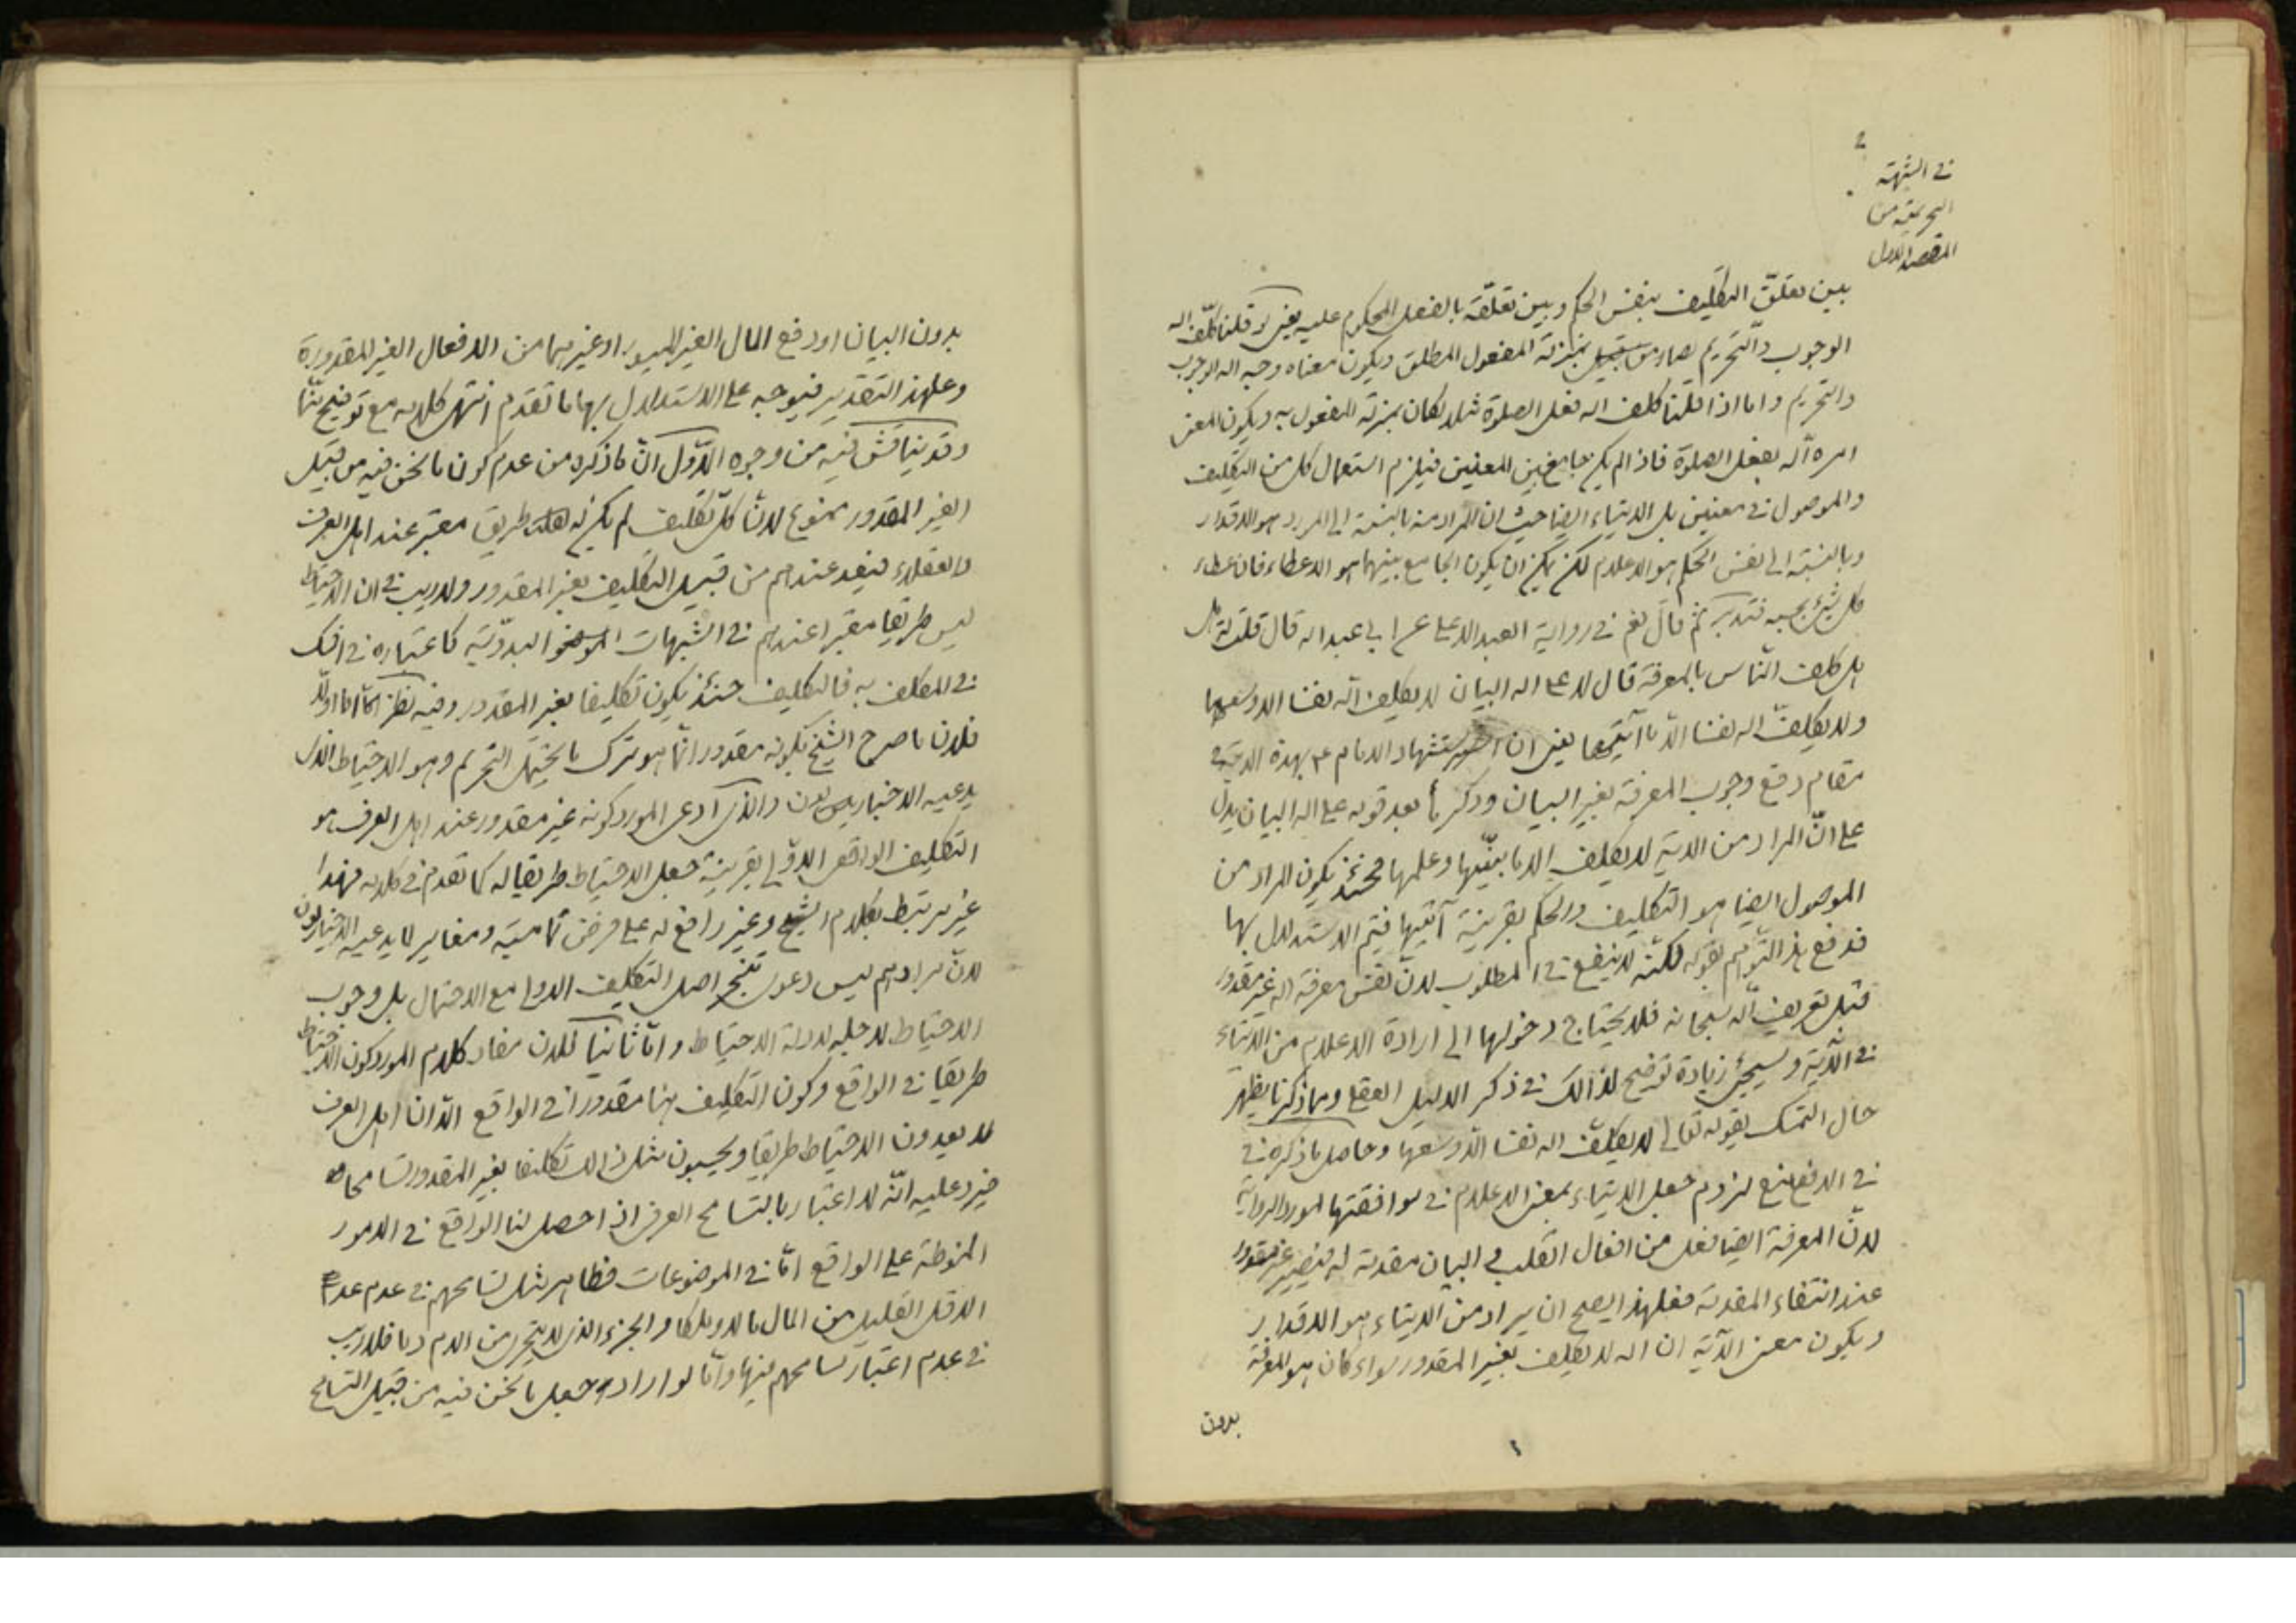 في الشبهة
التحريمية من
المقصد الاول
بين تعلق التكليف بنفس الحكم وبين تعلقه بالفعل المحكوم عليه يعني لو قلنا كلف الله
الوجوب والتحريم لصار من قبيل بمنزلة المفعول المطلق ويكون معناه وجب الله الوجوب
والتحريم واما اذا قلنا كلف الله فعل الصلوة مثلا لكان بمنزلة المفعول به ويكون المعنى
امره الله بفعل الصلوة فاذا لم يكن جامع بين المعنيين فيلزم استعمال كل من التكليف
والموصول في معنيين بل الايتاء ايضا حيث ان المراد منه بالنسبة الى المورد هو الاقدار
وبالنسبة الى نفس الحكم هو الاعلام لكن يمكن ان يكون الجامع بينهما هو الاعطاء فان عطاء
كل شيء بحسبه فتدبر ثم قال نعم في رواية العبد الاعلى عن ابي عبد الله قال قلت له
هل كلف الناس بالمعرفة قال لا على الله البيان لا يكلف الله نفسا الا وسعها
ولا يكلف الله نفسا الا ما آتيها يعني ان استشهاد الامام ع بهذه الاية في
مقام دفع وجوب المعرفة بغير البيان وذكرها بعد قوله على الله البيان يدل
على ان المراد من الاية لا يكلف الا ما بينها وعلمها فحينئذ يكون المراد من
الموصول ايضا هو التكليف والحكم بقرينة آتيها فيتم الاستدلال بها
فدفع هذا التوهم بقوله لكنه لا ينفع في المطلوب لان نفس معرفة الله غير مقدور
قبل تعريف الله سبحانه فلا يحتاج دخولها الى ارادة الاعلام من الايتاء
في الآية وسيجيء زيادة توضيح لذالك في ذكر الدليل العقلي ومما ذكرنا يظهر
حال التمسك بقوله تعالى لا يكلف الله نفسا الا وسعها وحاصل ما ذكره في
في الدفع منع لزوم جعل الايتاء بمعنى الاعلام في موافقتها لمورد الرواية
لان المعرفة ايضا فعل من افعال القلب و البيان مقدمة له فيصير غير مقدور
عند انتفاء المقدمة فعلى هذا يصح ان يراد من الايتاء هو الاقدار
ويكون معنى الآية ان الله لا يكلف بغير المقدور سواء كان هو المعرفة
بدون
بدون البيان او دفع المال الغير الميسور او غيرهما من الافعال الغير المقدورة
وعلى هذا التقدير فيتوجه على الاستدلال بها ما تقدم انتهى كلامه مع توضيح منا
وقد يناقش فيه من وجوه الاول ان ما ذكره من عدم كون ما نحن فيه من قبيل
الغير المقدور ممنوع لان كل تكليف لم يكن له طريق معتبر عند اهل العرف
والعقلاء فيعد عندهم من قبيل التكليف بغير المقدور ولا ريب في ان الاحتياط
ليس طريقا معتبرا عندهم في الشبهات البدوية كاعتباره في الشك
في المكلف به فالتكليف حينئذ يكون تكليفا بغير المقدور وفيه نظر اما اولا
فلان ما صرح الشيخ بكونه مقدورا انما هو ترك ما يحتمل التحريم وهو الاحتياط الذي
يدعيه الاخباريون والذي ادعى المورد كونه غير مقدور عند اهل العرف هو
التكليف الواقعي الاولي بقرينة جعل الاحتياط طريقا له كما تقدم في كلامه فهذا
غير مرتبط بكلام الشيخ وغير رافع له على فرض تماميته ومغاير لما يدعيه الاخباريون
لان مرادهم ليس دعوى تنجز اصل التكليف الاولي مع الاحتمال بل وجوب
الاحتياط لاجله لادلة الاحتياط واما ثانيا فلان مفاد كلام المورد كون الاحتياط
طريقا في الواقع وكون التكليف هنا مقدورا في الواقع الا ان اهل العرف
لا يعدون الاحتياط طريقا ويحسبون مثل ذالك تكليفا بغير المقدور تسامحا
فيرد عليه انه لا اعتبار بالتسامح العرفي اذا حصل لنا الواقع في الامور
المنوطة على الواقع اما في الموضوعات فظاهر مثل تسامحهم في عدم عد
الاقل القليل من المال مالا وملكا والجزء الذي لا يتجزى من الدم دما فلا ريب
في عدم اعتبار تسامحهم فيها واما لو اراد جعل ما نحن فيه من قبيل التسامح